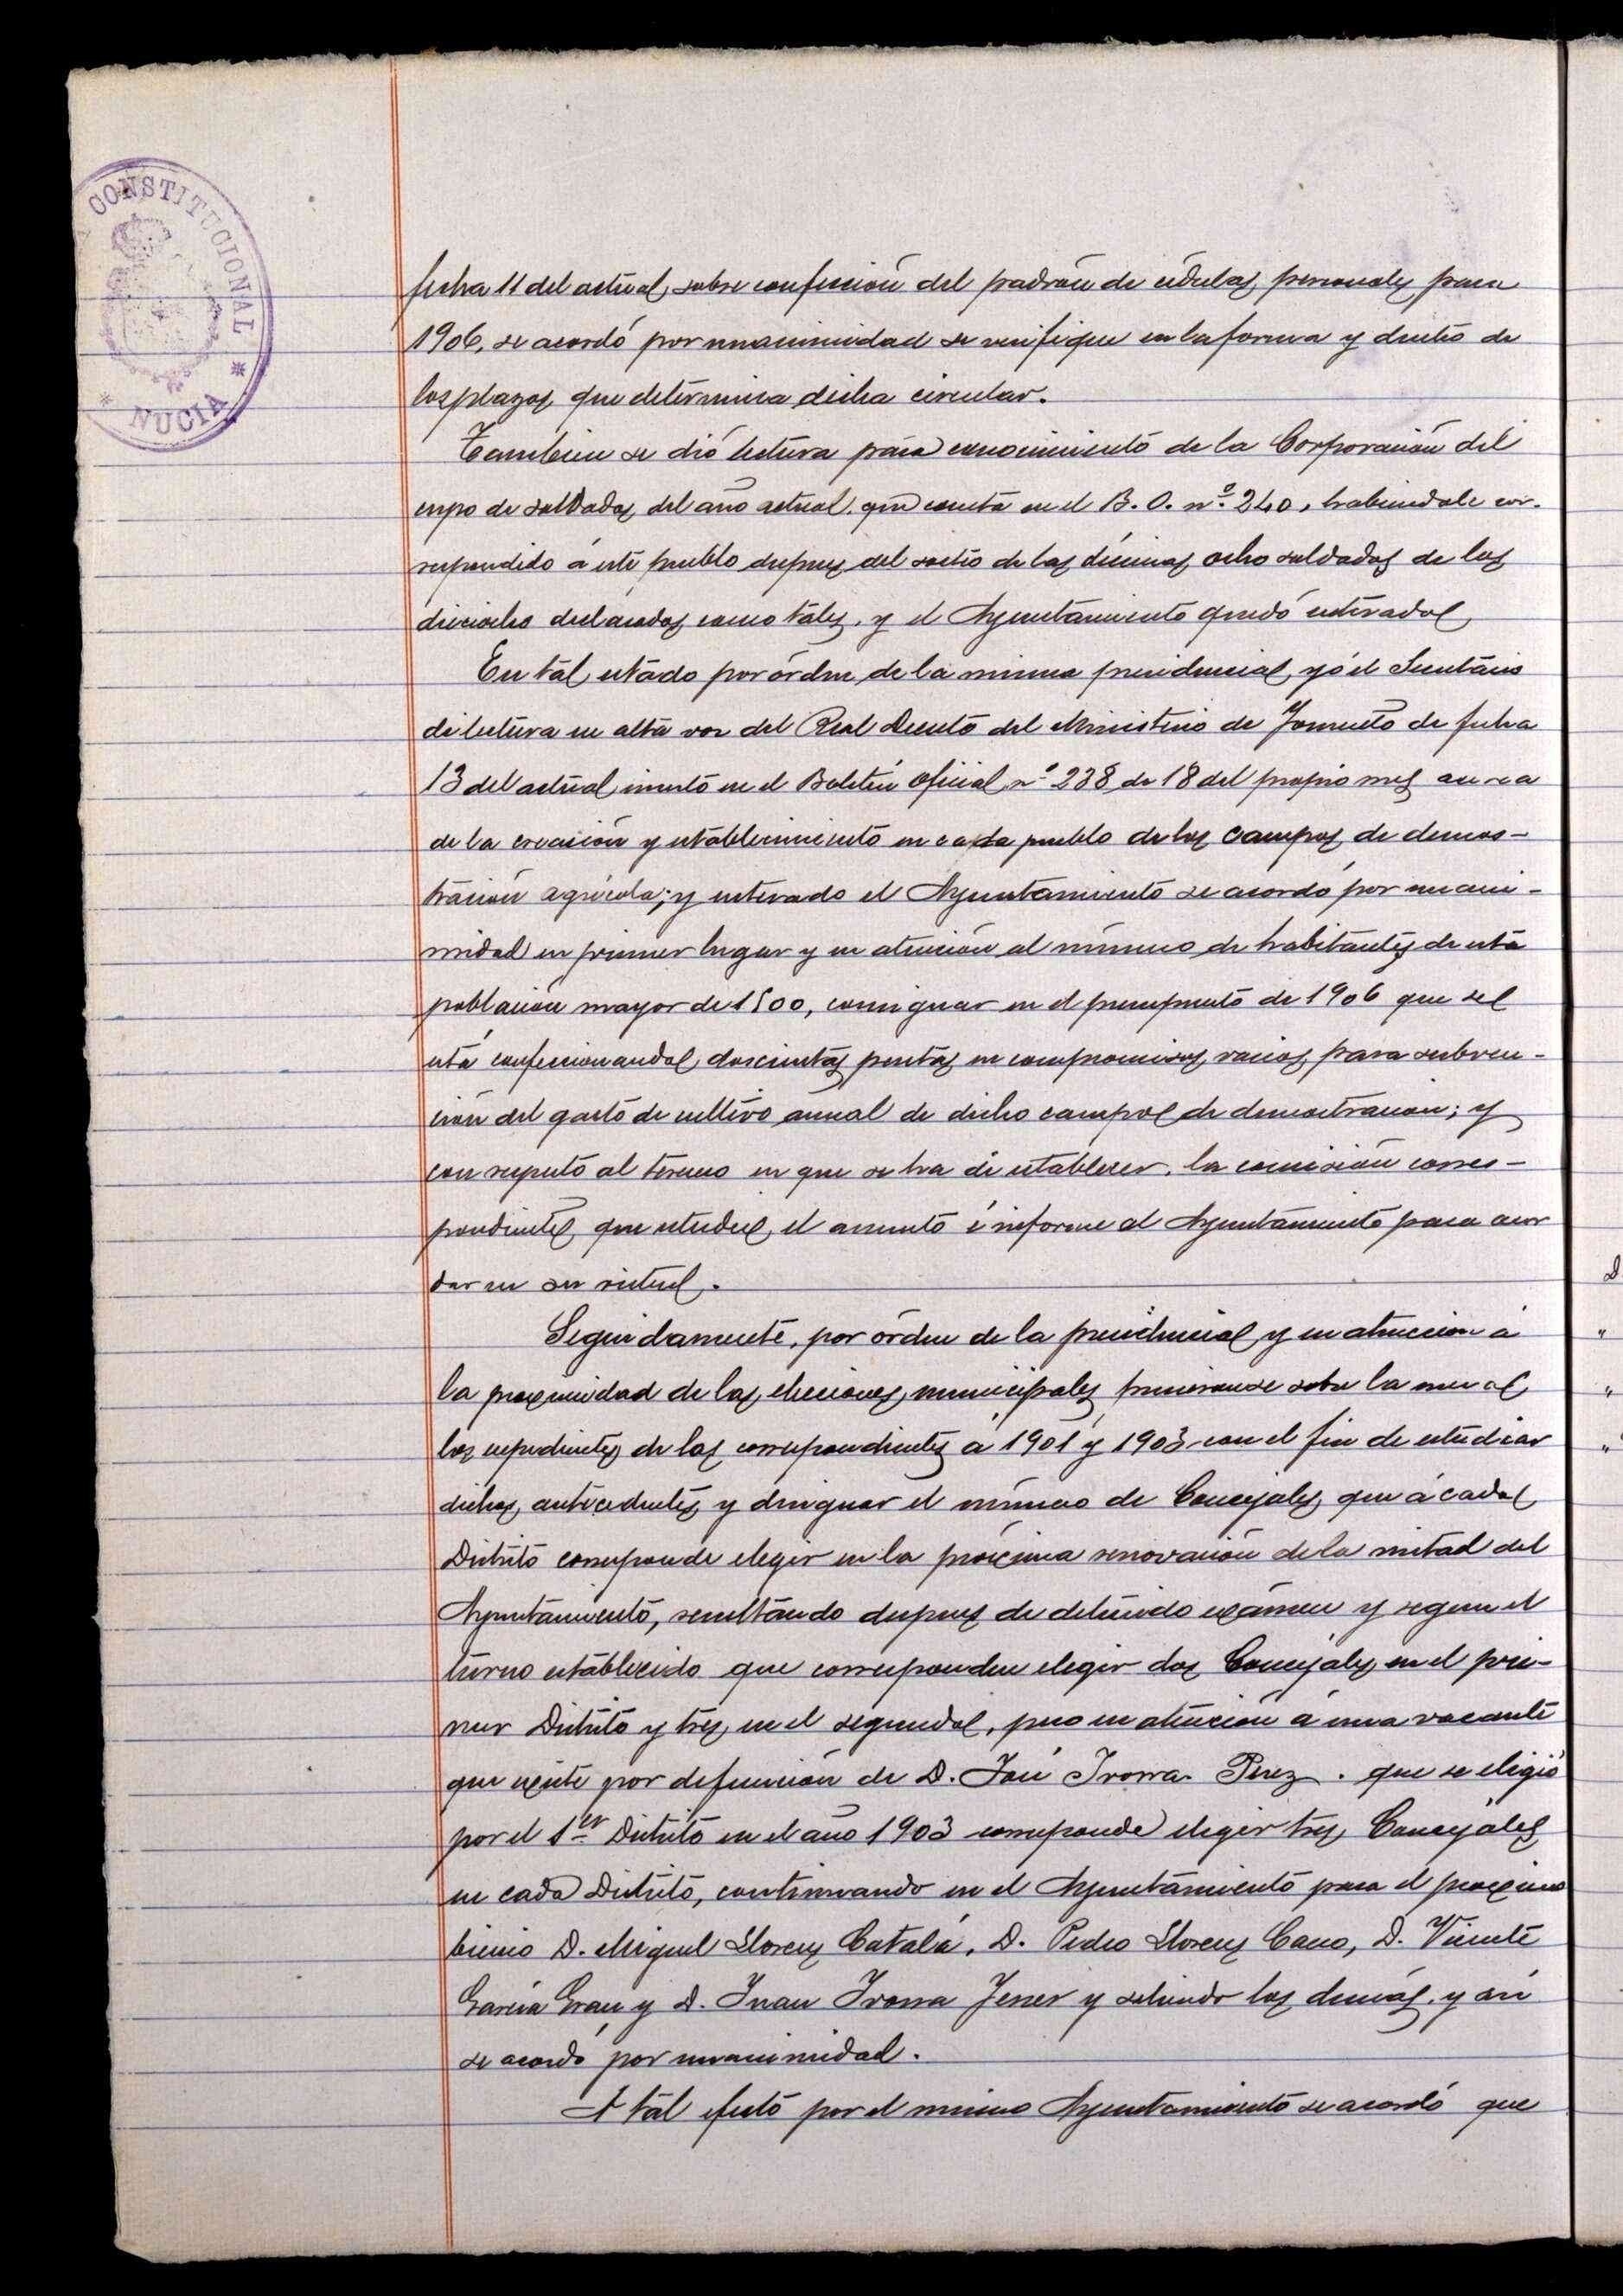 CONSTITUCIONAL
* NUCIA *
fecha 11 del actual, sobre confección del padrón de cédulas personales para
1906, se acordó por unanimidad se verifique en la forma y dentro de
los plazos que determina dicha circular.
Tambien se dió lectura para conocimiento de la Corporación del
cupo de soldados del año actual que consta en el B. O. nº 240, habiendole cor-
respondido á este pueblo despues del sorteo de las décimas, ocho soldados de los
dieciocho declarados como tales, y el Ayuntamiento quedó enterado.
En tal estado por órden de la misma presidencia, yo el Secretario
di lectura en alta voz del Real Decreto del Ministerio de Fomento de fecha
13 del actual inserto en el Boletín Oficial nº 238 de 18 del propio mes acerca
de la creación y establecimiento en cada pueblo de los campos de demos-
tración agrícola; y enterado el Ayuntamiento se acordó por unani-
midad en primer lugar y en atención al número de habitantes de esta
población mayor de 1500, consignar en el presupuesto de 1906 que se
está confeccionando, doscientas pesetas en compromisos varios, para subven-
ción del gasto de cultivo anual de dicho campo de demostración; y
con respeto al terreno en que se ha de establecer, la comisión corres-
pondiente que estudie el asunto é informe al Ayuntamiento para acor
dar en su virtud.
Seguidamente, por órden de la presidencia y en atención á
la proximidad de las elecciones municipales pusieronse sobre la mesa
los expedientes de las correspondientes á 1901 y 1903 con el fin de estudiar
dichos antecedentes y designar el número de Concejales que á cada
Distrito corresponde elegir en la próxima renovación de la mitad del
Ayuntamiento, resultando despues de detenido exámen y segun el
turno establecido que corresponden elegir dos Concejales en el pri-
mer Distrito y tres en el segundo, pero en atención á una vacante
que existe por defunción de D. José Ivorra Perez. que se eligió
por el 1er Distrito en el año 1903 corresponde elegir tres Concejales
en cada Distrito, continuando en el Ayuntamiento para el proximo
bienio D. Miguel Llorens Catalá, D. Pedro Llorens Cano, D. Vicente
García Grau y D. Juan Ivorra Jener y saliendo los demás, y así
se acordó por unanimidad.
A tál efecto por el mismo Ayuntamiento se acordó que